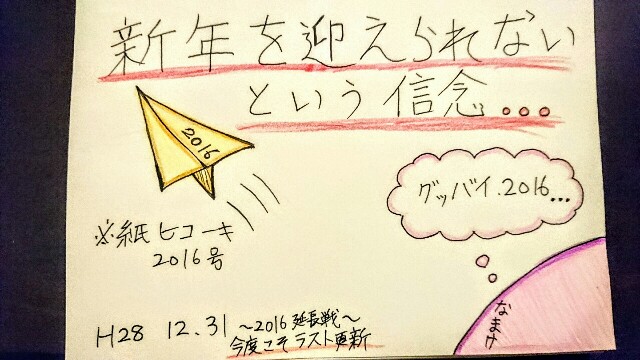 新年を迎えられない
という信念...
2016
グッバイ.2016...
※紙ヒコーキ
2016号
なまけ
H28 12.31 〜2016延長戦〜
今度こそラスト更新